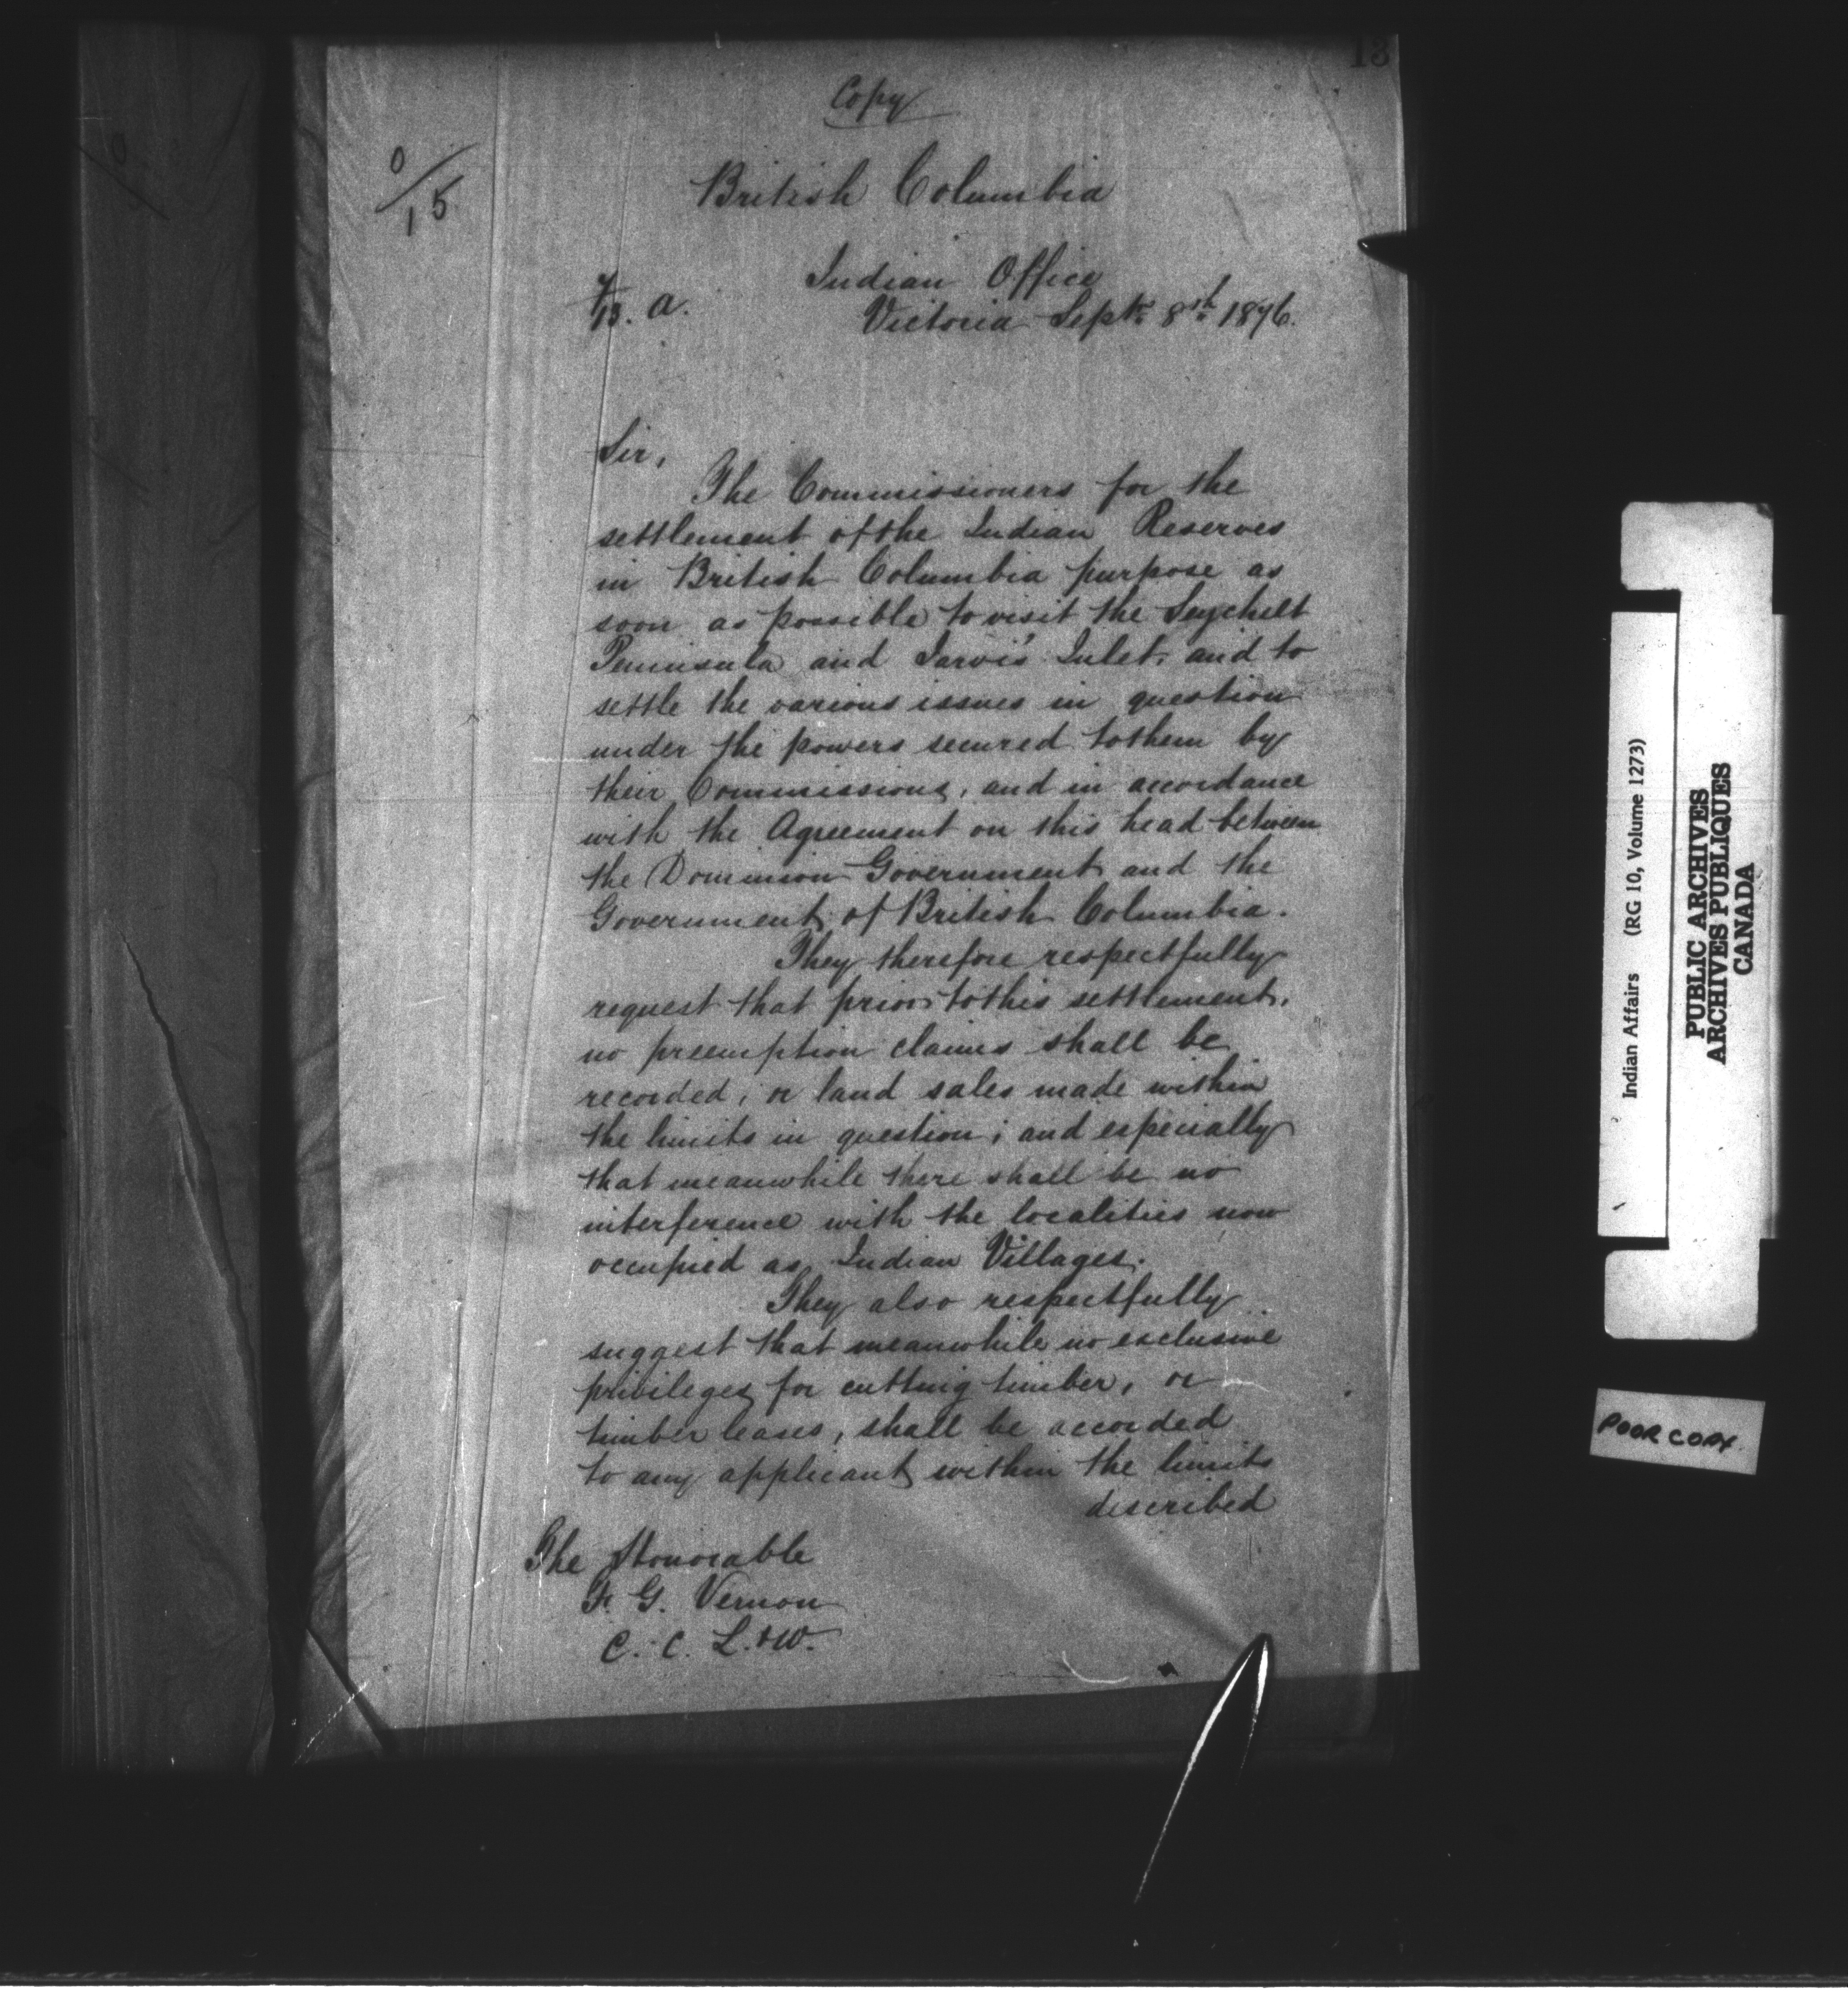 13
Copy
0/15
British Columbia
Indian Office
Victoria Sept. 8th 1876.
a.
Sir,
The Commissioners for the
settlement of the Indian Reserves
in British Columbia purpose as
soon as possible to visit the Seychelt
Peninsula and Jarvis Inlet, and to
settle the various issues in question
under the powers secured to them by
their Commissions, and in accordance
with the Agreement on this head between
the Dominion Government and the
Government of British Columbia.
They therefore respectfully
request that prior to this settlement,
no preemption claims shall be
recorded, or land sales made within
the limits in question; and especially
that meanwhile there shall be no
interference with the localities now
occupied as Indian Villages.
They also respectfully
suggest that meanwhile no exclusive
privileges for cutting timber, or
timber leases, shall be accorded
to any applicant within the limits
described
The Honorable
F. G. Vernon
C. C. L. & W.
Indian Affairs (RG 10, Volume 1273)
PUBLIC ARCHIVES
ARCHIVES PUBLIQUES
CANADA
POOR COPY